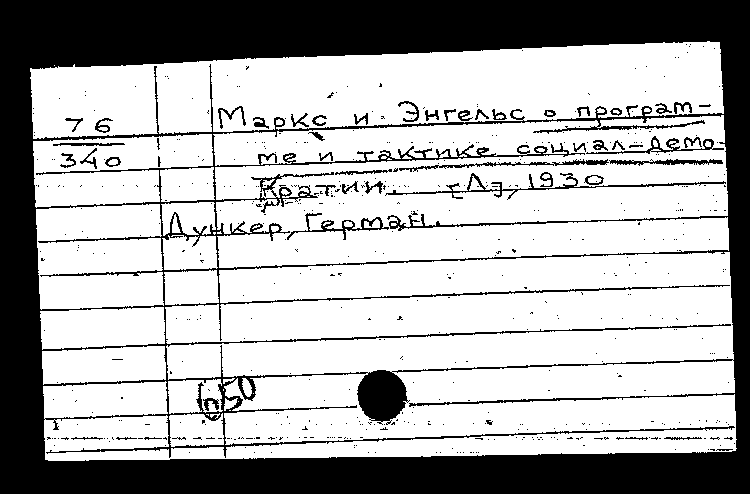 76
340
Маркс и Энгельс о програм-
ме и тактике социал-демо-
кратии. [Л], 1930
Дункер, Герман.
(п)50